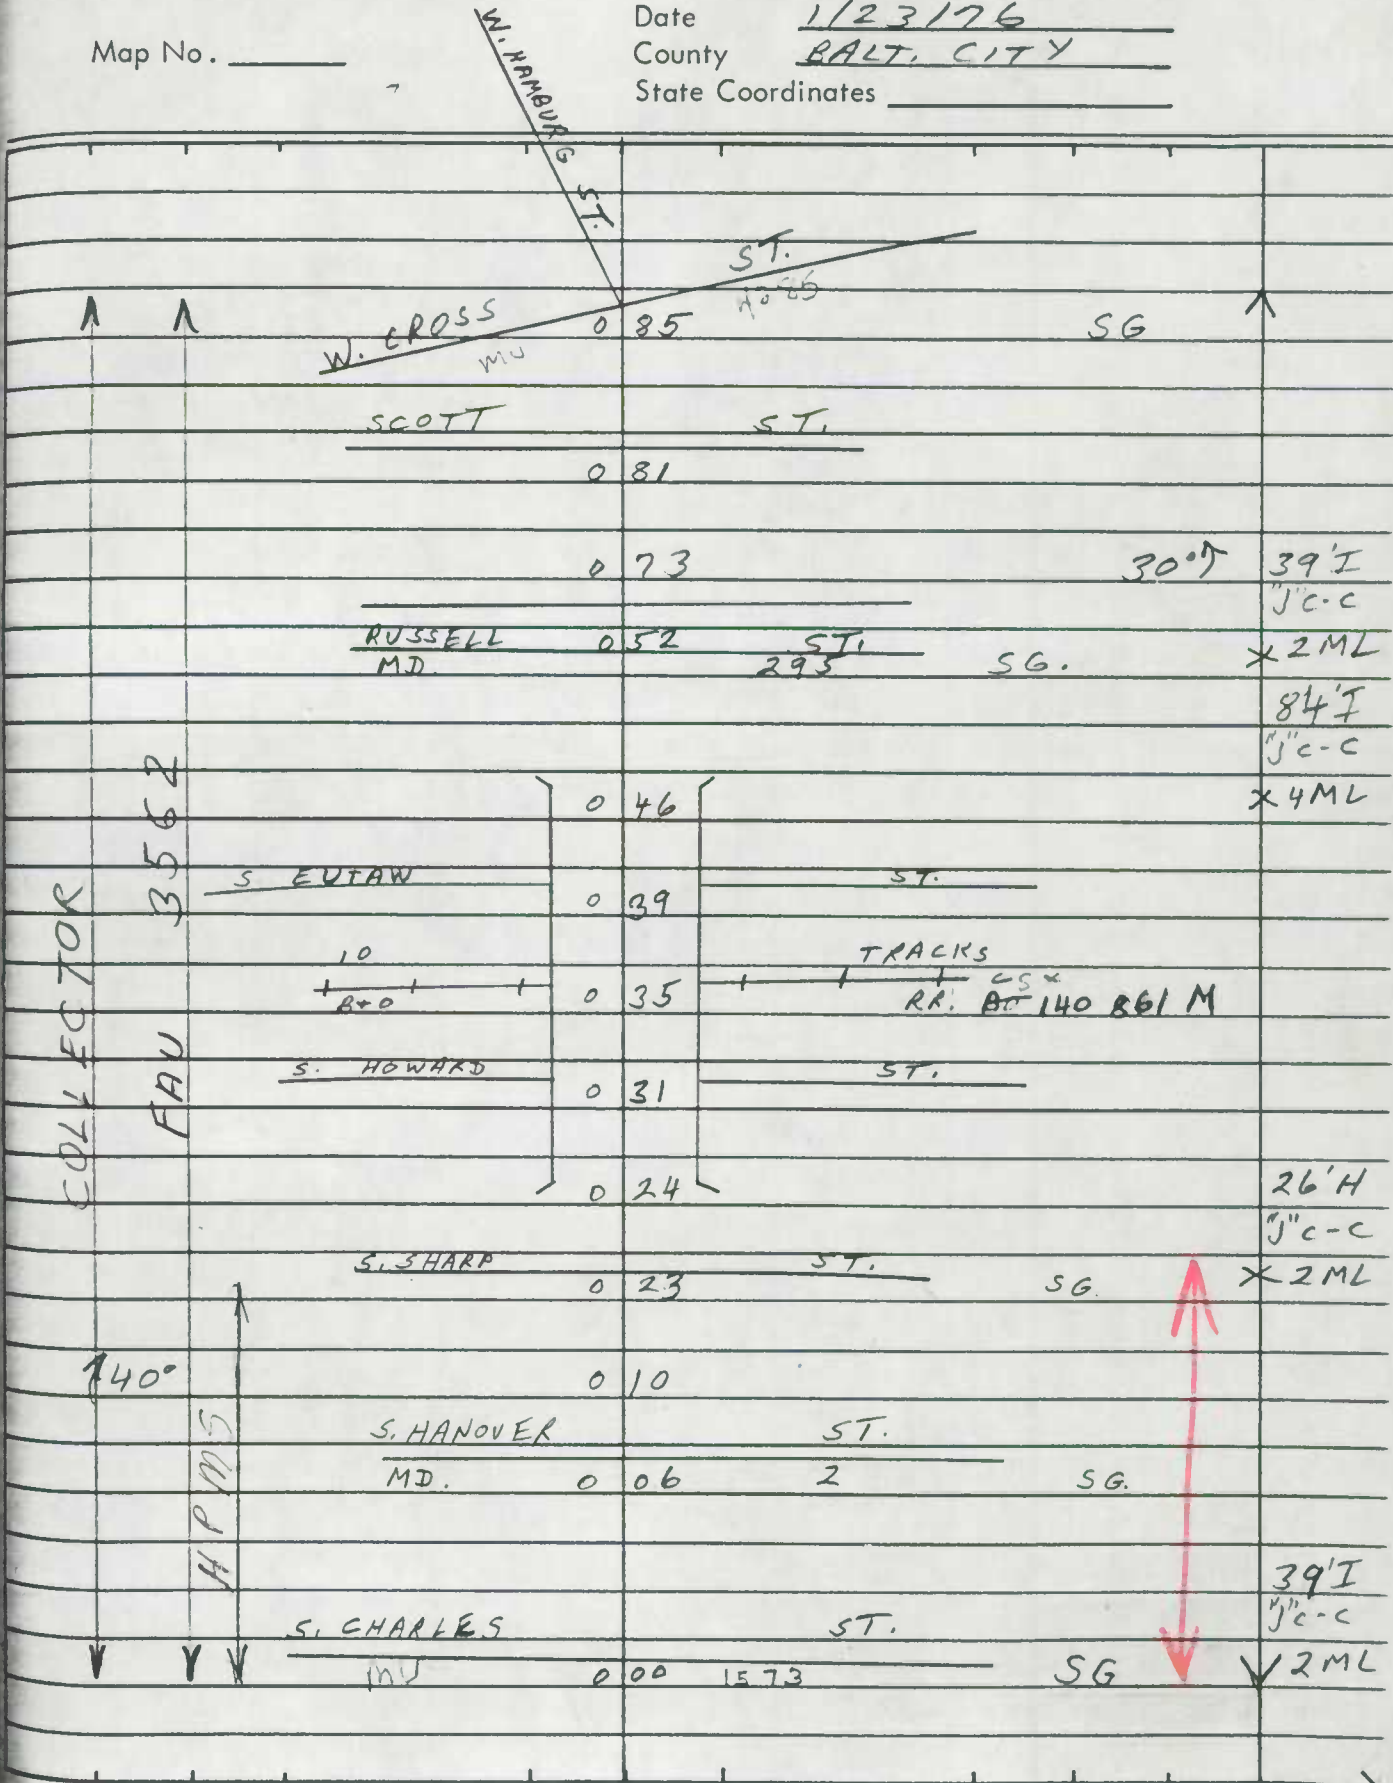 Date 1/23/76
Map No.
County BALT. CITY
State Coordinates
W. HAMBURG ST.
W. CROSS ST.
MU
0 85 SG
SCOTT ST.
0 81
0 73 30° 39'I
"J" C-C
RUSSELL 0 52 ST. 2 ML
MD. 295 SG.
84'I
"J" C-C
0 46 4 ML
S EUTAW ST.
0 39
10 TRACKS
B+O 0 35 RR. CSX 140 861 M
S. HOWARD ST.
0 31
0 24 26'H
"J" C-C
S. SHARP ST.
0 23 SG. 2 ML
40° 0 10
S. HANOVER ST.
MD. 0 06 2 SG.
39'I
"J" C-C
S. CHARLES ST.
MU 0 00 1573 SG 2 ML
COLLECTOR
FAU 3562
HPMS